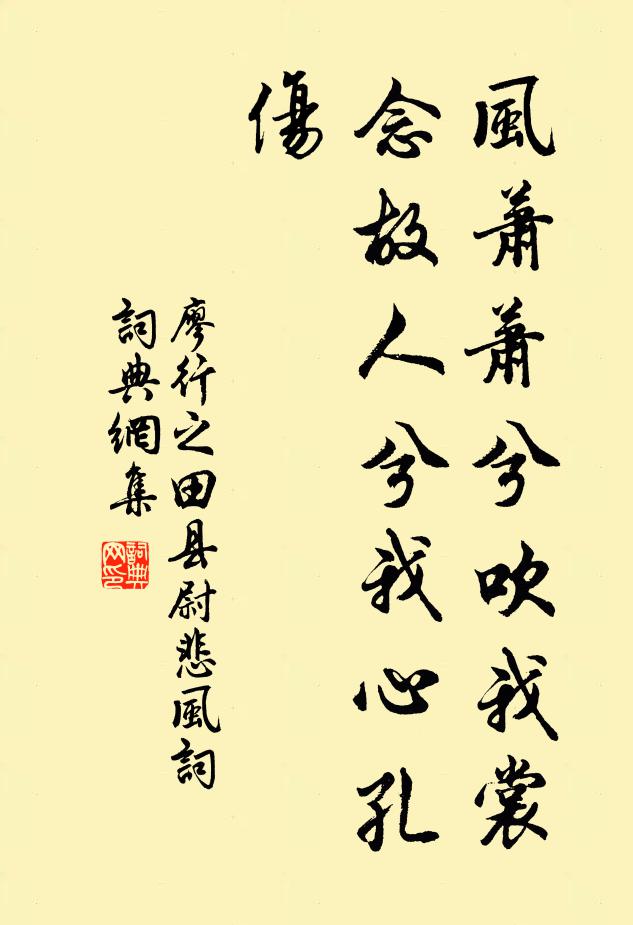 風蕭蕭兮吹我裳
念故人兮我心孔
傷
廖行之田县尉悲風詞
詞典網集
詞典網印